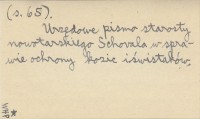 (s. 65).
Urzędowe pismo starosty
nowotarskiego Schovala w spra-
wie ochrony kozic i świstaków.
WHP
*